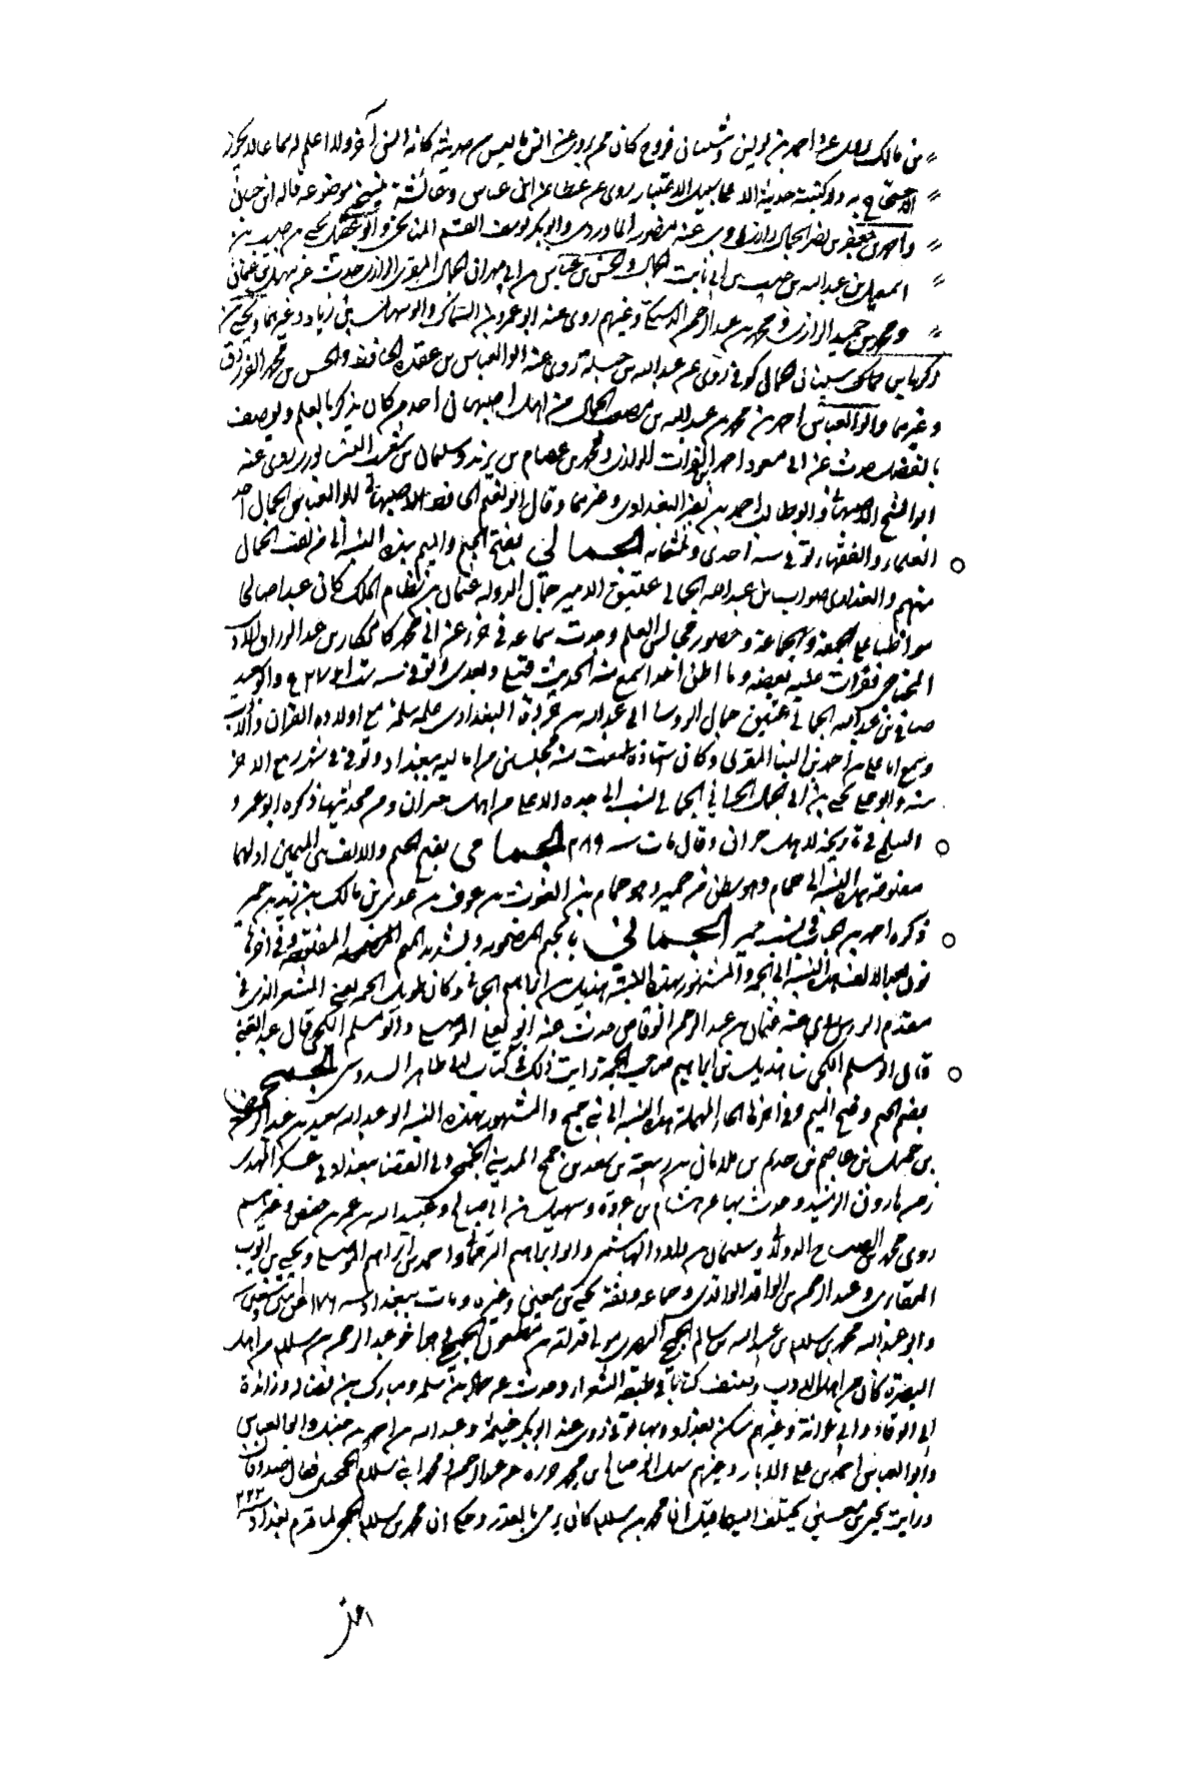 بن مالك روى عنه احمد بن يونس وشيبان بن فروخ كان ممن يروى عن انس ما ليس من حديثه كانه انس آخر ولا اعلم له سماعا لا يجوز
الاحتجاج به ولا كتبة حديثه الا على سبيل الاعتبار روى عن عطا عن ابن عباس وعائشة نسخ موضوعة قاله ابن حبان
واحمد بن جعفر بن نصر الجمال الرازى روى عنه منصور الماوردى وابو بكر يوسف بن القسم
اسمعيل بن عبد الله بن حبيب بن ابى ثابت الجمال والحسن بن عباس بن ابى مهران الجمال المقرى الرازى حدث عن سهل بن عثمان
ومحمد بن حميد الرازى ومحمد بن عبد الرحيم وغيرهم روى عنه ابو عمرو بن السماك وابو سهل بن زياد وغيرهما ويحيى بن
زكريا بن شيبان الجمال كوفى روى عن عبد الله بن جبلة روى عنه ابو العباس بن عقدة الحافظ والحسن بن محمد الفرزدق
وغيرهما وابو العباس احمد بن محمد بن عبد الله بن مصعب الجمال من اهل اصبهان احد من كان يذكر بالعلم ويوصف
بالفضل حدث عن ابى مسعود احمد بن الفرات الرازى ومحمد بن عصام بن يزيد وسليمان بن شعيب النيسابورى روى عنه
ابو الشيخ الاصبهانى وابو طالب احمد بن نصر البغدادى وغيرهما وقال ابو نعيم الحافظ الاصبهانى ابو العباس الجمال احد
العلماء والفقهاء توفى سنة احدى وثلثمائه الجمالى بفتح الجيم والميم هذه النسبة الى من لقبه الجمال
منهم صواب بن عبد الله الجمالى عتيق الامير جمال الدولة عثمان بن نظام الملك كان عبدا صالحا
مواظبا على الجمعة والجماعة وحضور مجالس العلم وجدت سماعه فى جزء عن ابى محمد كامكار بن عبد الرزاق الاديب
المحتاجى فقرات عليه بعضه وما اظن احدا سمع منه الحديث قبلى وبعدى وتوفى سنة وابو سعيد
صافى بن عبد الله الجمالى عتيق جمال الروسا ابى عبد الله بن جردة البغدادى علمه سلمه مع اولاده القران والاداب
وسمع ابا على بن احمد بن البنا المقرى وكان استاذه سمعت منه مجلسين من اماليه ببغداد وتوفى فى شهر ربيع الاخر
سنة وابو على يحيى بن ابى الجمالى نسب الى جده الاعلى من اهل حران ومن محدثيها ذكره ابو عمرو
السلمى فى تاريخه لاهل حران وقال مات سنه الجمامى بفتح الجيم والالف بين الميمين اولهما
مفتوحة هذه النسبة الى جمام وهو بطن من حمير وهو جمام بن الغوث بن عوف بن عدى بن مالك بن زيد بن حمير
ذكره احمد بن الحباب فى نسب حمير الجمانى بالجيم المضمومه وتشديد الميم المفتوحة وفى اخرها
نون بعد الالف هذه النسبة الى الجمة والمشهور بهذه النسبة هذيل بن ابراهيم الجمانى وكان طويل الجمة يعنى الشعر الذى فى
مقدم الرس روى عن عثمان بن عبد الرحمن الوقاصى حدث عنه ابو يعلى الموصلى وابو مسلم الكجى قال عبد الغنى
قال ابو مسلم الكجى نا هذيل بن ابراهيم صاحب الجمة رايت ذلك فى كتاب ابى طاهر السدوسى الجمحى
بضم الجيم وفتح الميم وفى اخرها الحاء المهملة هذه النسبة الى بنى جمح والمشهور بهذه النسبة ابو عبد الله سعيد بن عبد الرحمن
بن جميل بن عامر بن حديم بن سلامان بن ربيعة بن سعد بن جمح المدينى الجمحى ولى القضا ببغداد فى عسكر المهدى
زمن هارون الرشيد وحدث بها عن هشام بن عروة وسهيل بن ابى صالح وعبيد الله بن عمر بن حفص وغيرهم
روى محمد بن الصباح الدولابى وسليمان بن داود الهاشمى وابو ابراهيم الترجمانى واحمد بن ابراهيم الموصلى ويحيى بن ايوب
المقابرى وعبد الرحمن بن الواقد الواقدى وجماعه وثقه يحيى بن معين وغيره ومات ببغداد سنه ١٧٦ عن ثنتين وسبعين سنه
وابو عبد الله محمد بن سلام بن عبيد الله بن سالم الجمحى البصرى مولى قدامة بن مظعون الجمحى اخو عبد الرحمن بن سلام من اهل
البصرة كان من اهل الادب وصنف كتابا فى طبقة الشعراء وحدث عن حماد بن سلمة ومبارك بن فضالة وزائدة
ابى الوقاد وابى عوانة وغيرهم سكن بغداد وبها توفى روى عنه ابو بكر بن خيثمة وعبد الله بن احمد بن حنبل وابو العباس
وابو العباس احمد بن على الابار وغيرهم سئل ابو صالح بن محمد جزره عن عبد الرحمن ومحمد ابنى سلام الجمحى فقال صدوقان
ورايت يحيى بن معين يختلف اليهما قيل ان محمد بن سلام كان يرمى بالقدر وحكى ان محمد بن سلام الجمحى لما قدم بغداد سنه ٢٢٢
اعتل